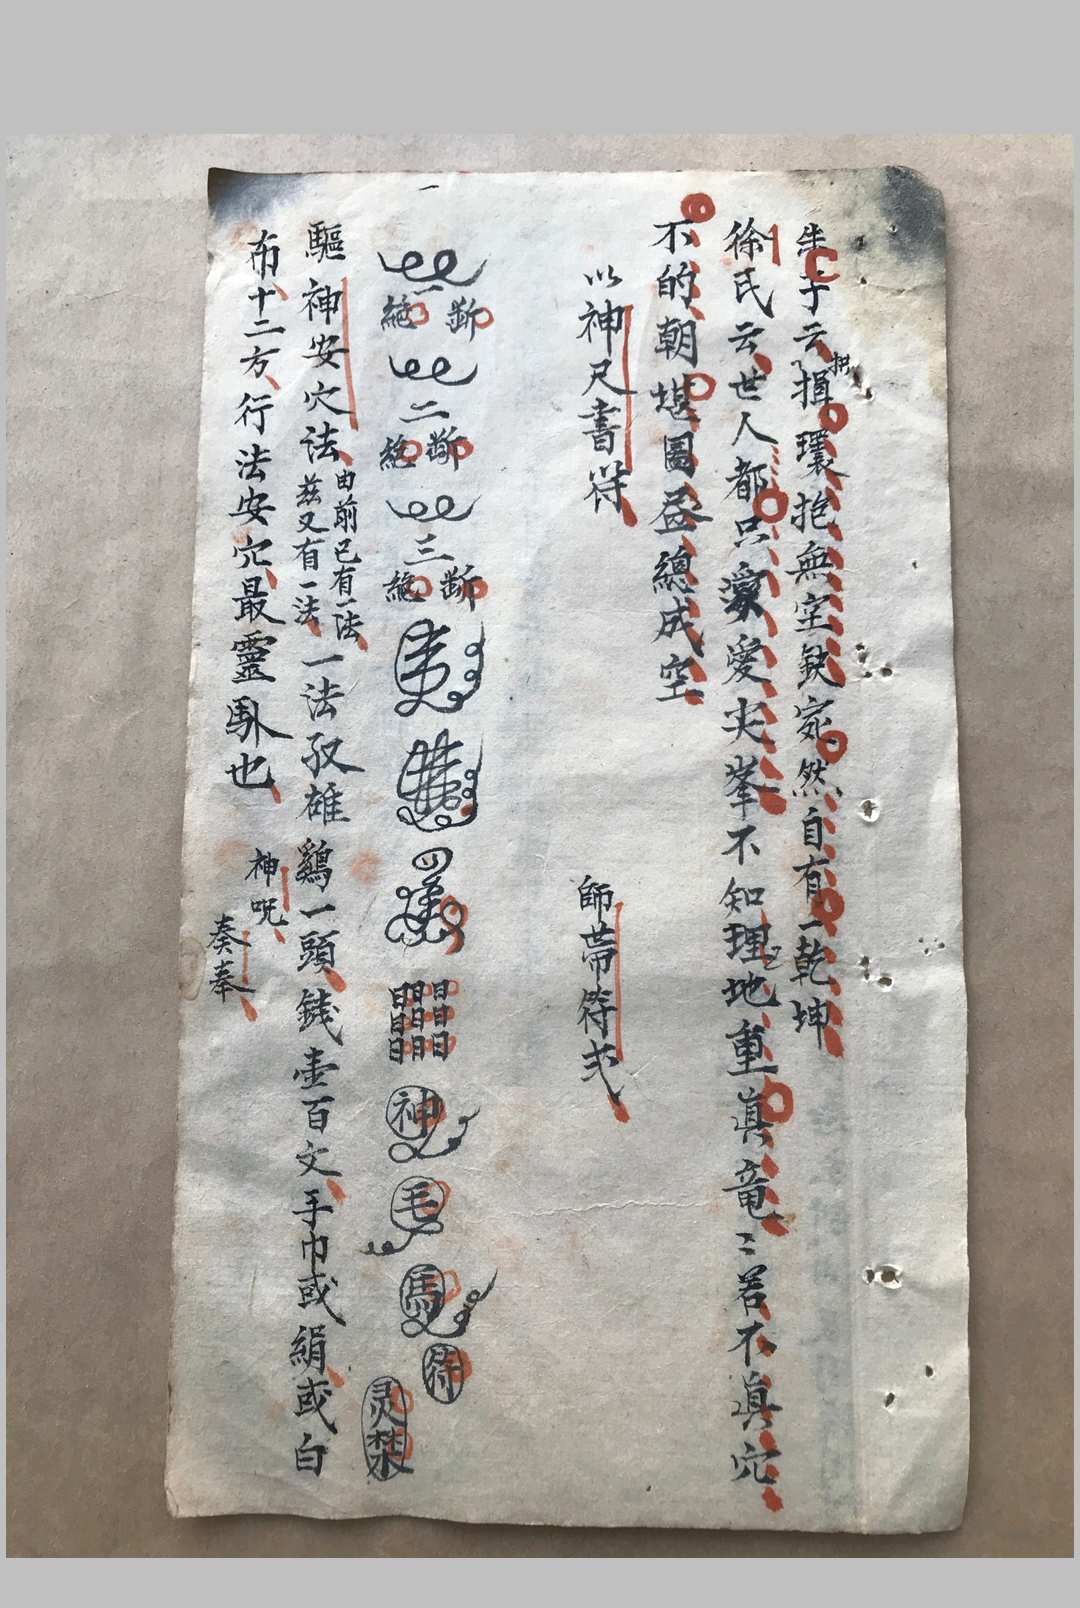 朱子云揖環抱無空缺宛然自有一乾坤
拱
徐氏云世人都只愛尖峯不知理地重真竜〻若不真穴
不的朝堪圖盡總成空
以神尺書符
師帶符弍
一
一断絶
二断絶
三断絶
日日日日日日日日日
神
毛
馬
符
灵禁
驅神安穴法由前已有一法
茲又有一法
一法取雄鷄一頭錢壹百文手巾或絹或白
布十二方行法安穴最靈馱也
神呪
奏奉